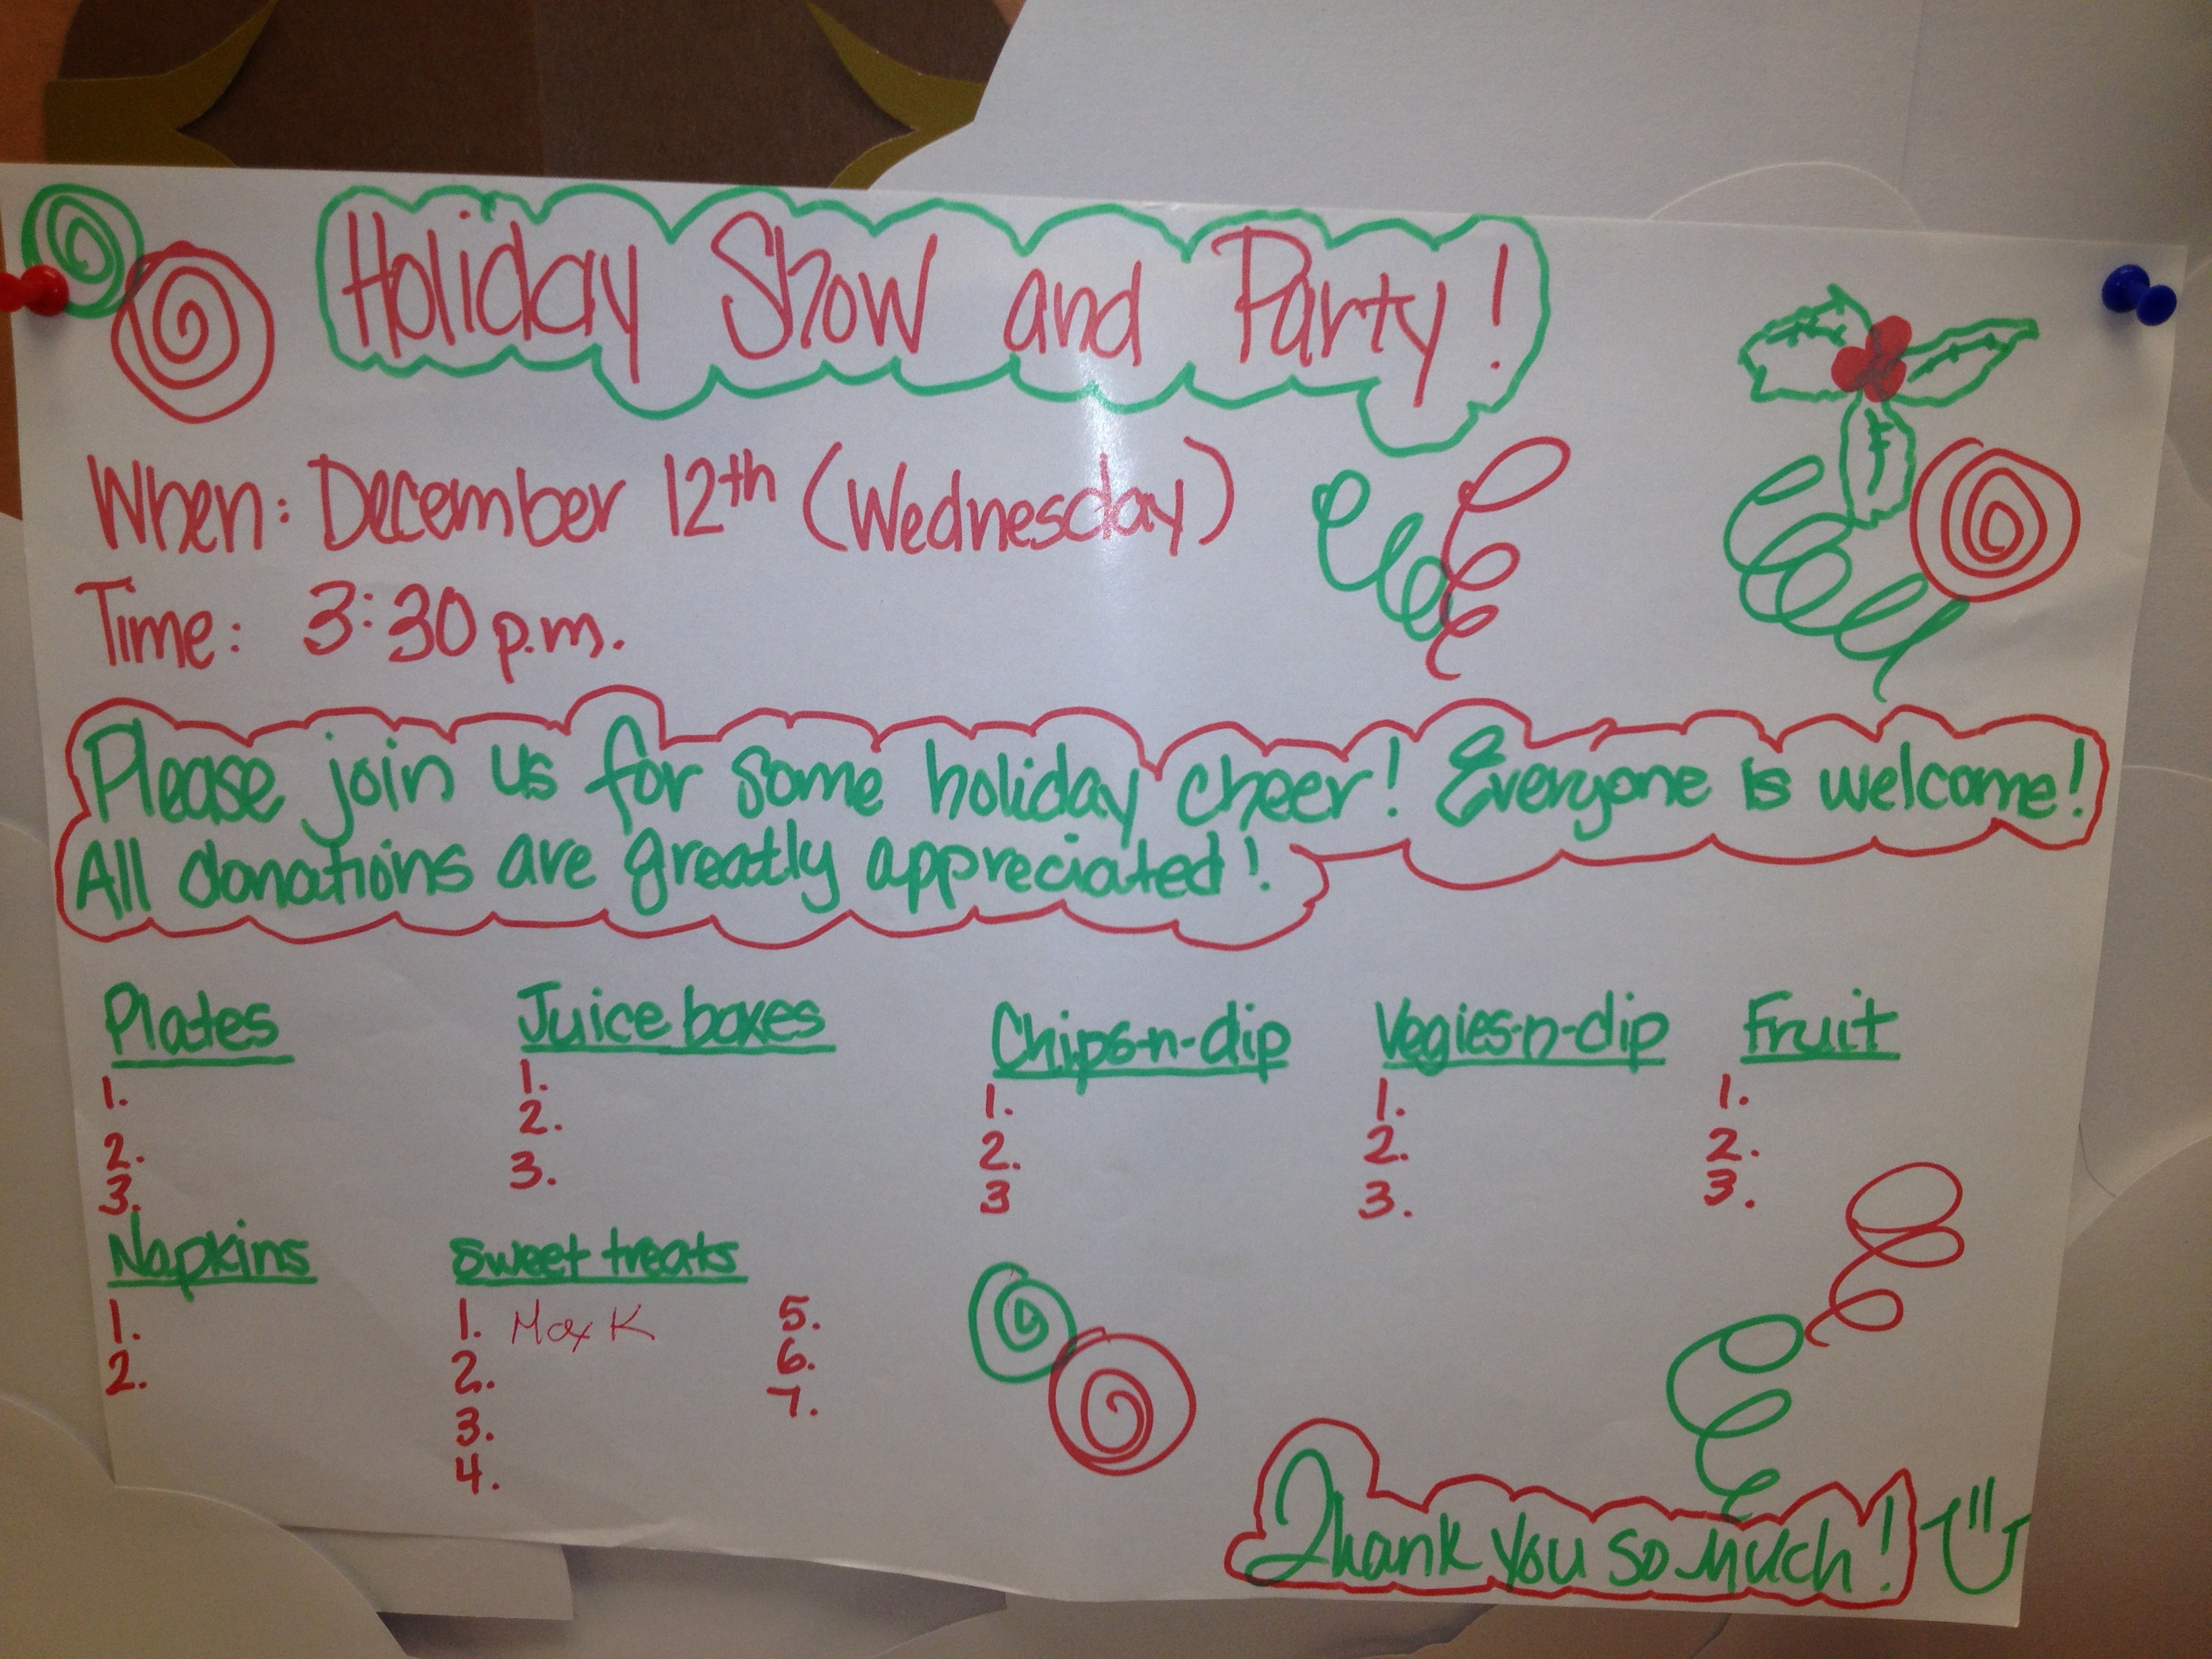 Holiday Show and Party!
When: December 12th (Wednesday)
Time: 3:30 p.m.
Please join us for some holiday cheer! Everyone is welcome!
All donations are greatly appreciated!
Plates
1.
2.
3.
Juice boxes
1.
2.
3.
Chips-n-dip
1.
2.
3
Vegies-n-dip
1.
2.
3.
Fruit
1.
2.
3.
Napkins
1.
2.
Sweet treats
1. Max K
2.
3.
4.
5.
6.
7.
Thank you so much!